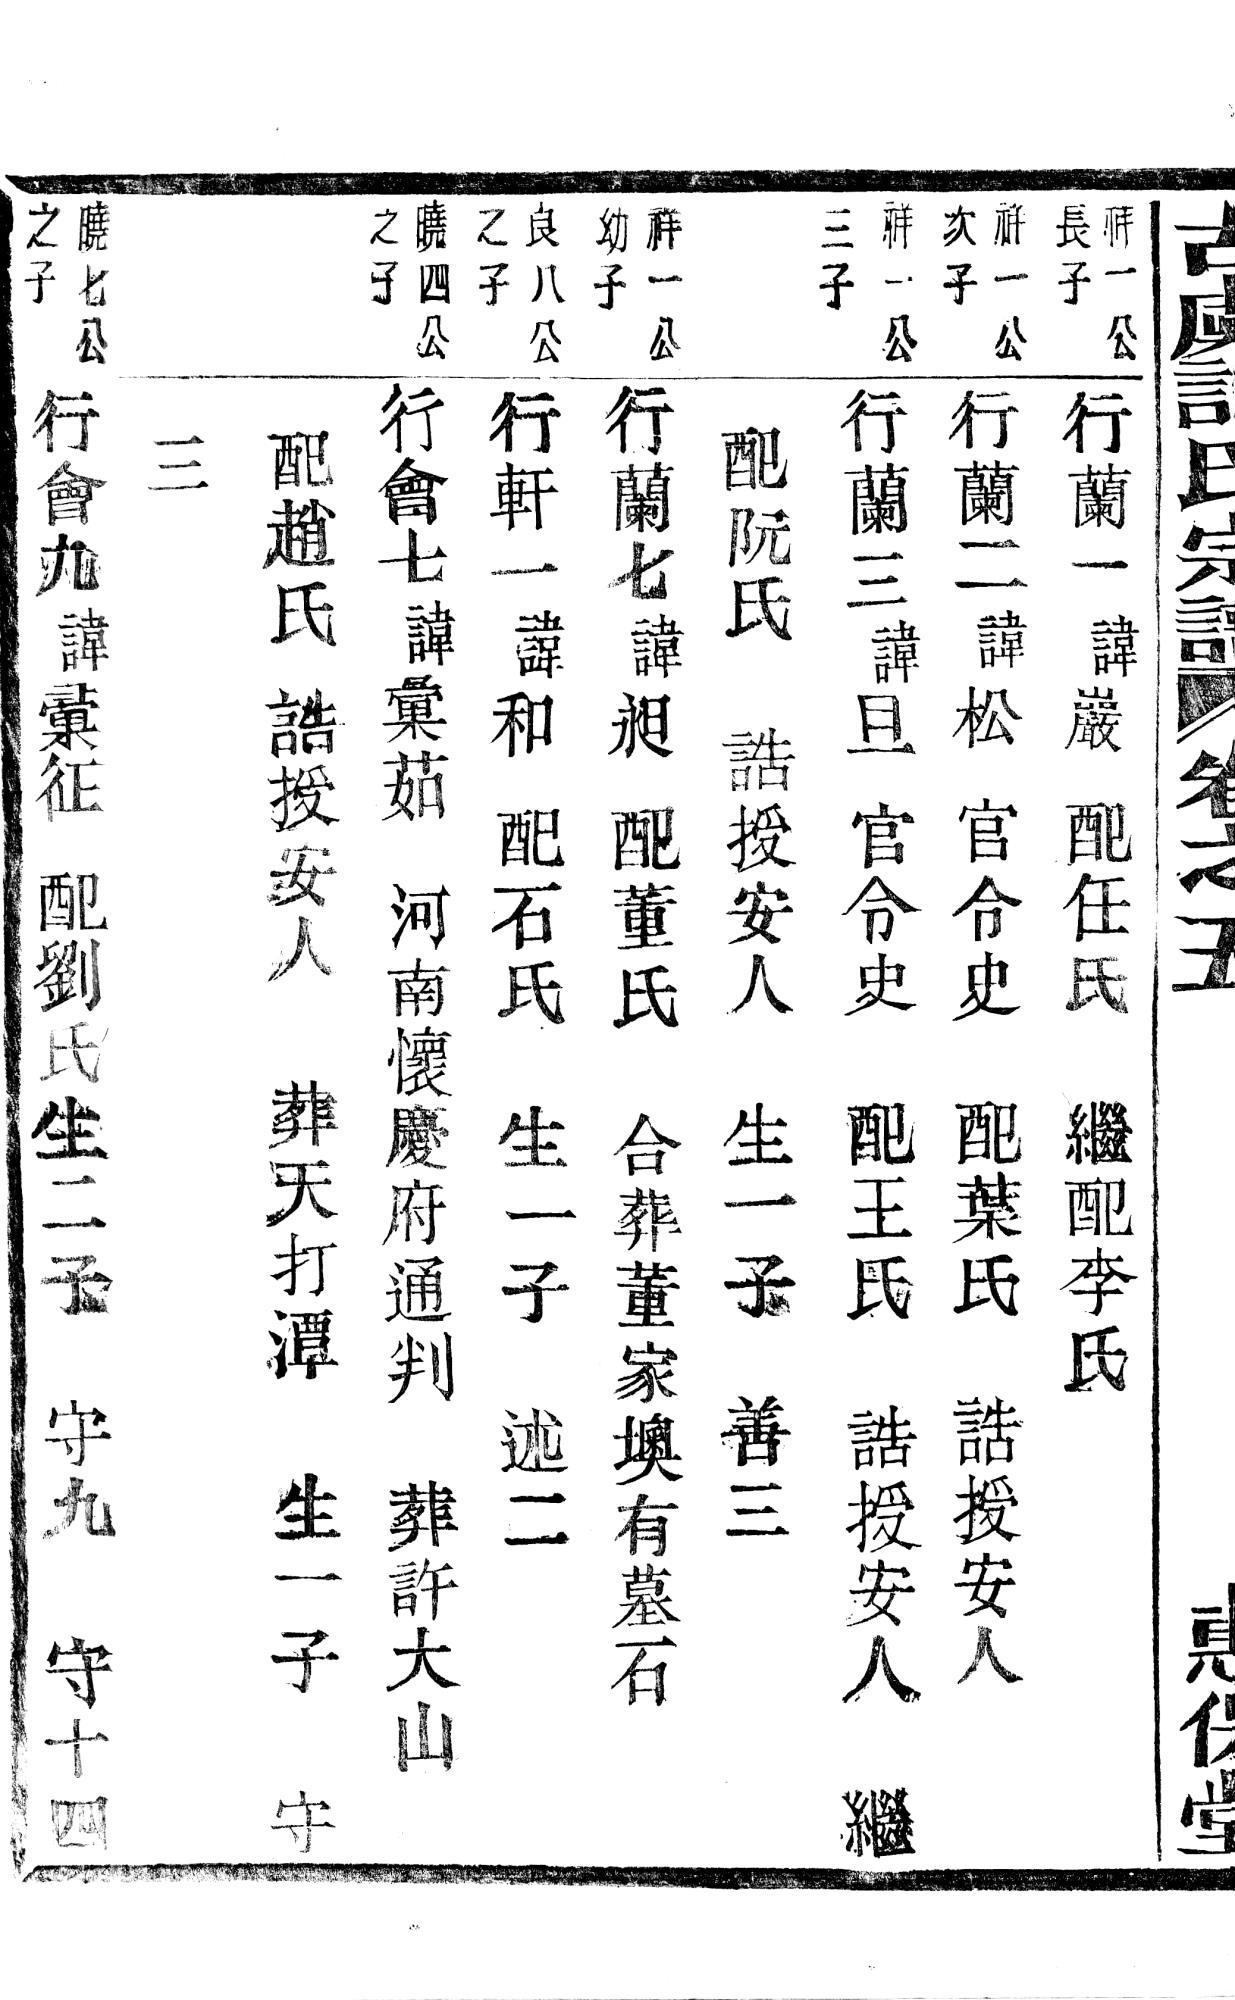 古虞許氏宗譜 卷之五 惠保堂
祥一公長子 行蘭一諱巖 配任氏 繼配李氏
祥一公次子 行蘭二諱松 官令史 配葉氏 誥授安人
祥一公三子 行蘭三諱旦 官令史 配王氏 誥授安人 繼
配阮氏 誥授安人 生一子 善三
祥一公幼子 行蘭七諱昶 配董氏 合葬董家墺有墓石
良八公之子 行軒一諱和 配石氏 生一子 述二
曉四公之子 行會七諱彙茹 河南懷慶府通判 葬許大山
配趙氏 誥授安人 葬天打潭 生一子 守
三
曉七公之子 行會九諱彙征 配劉氏生二子 守九 守十四